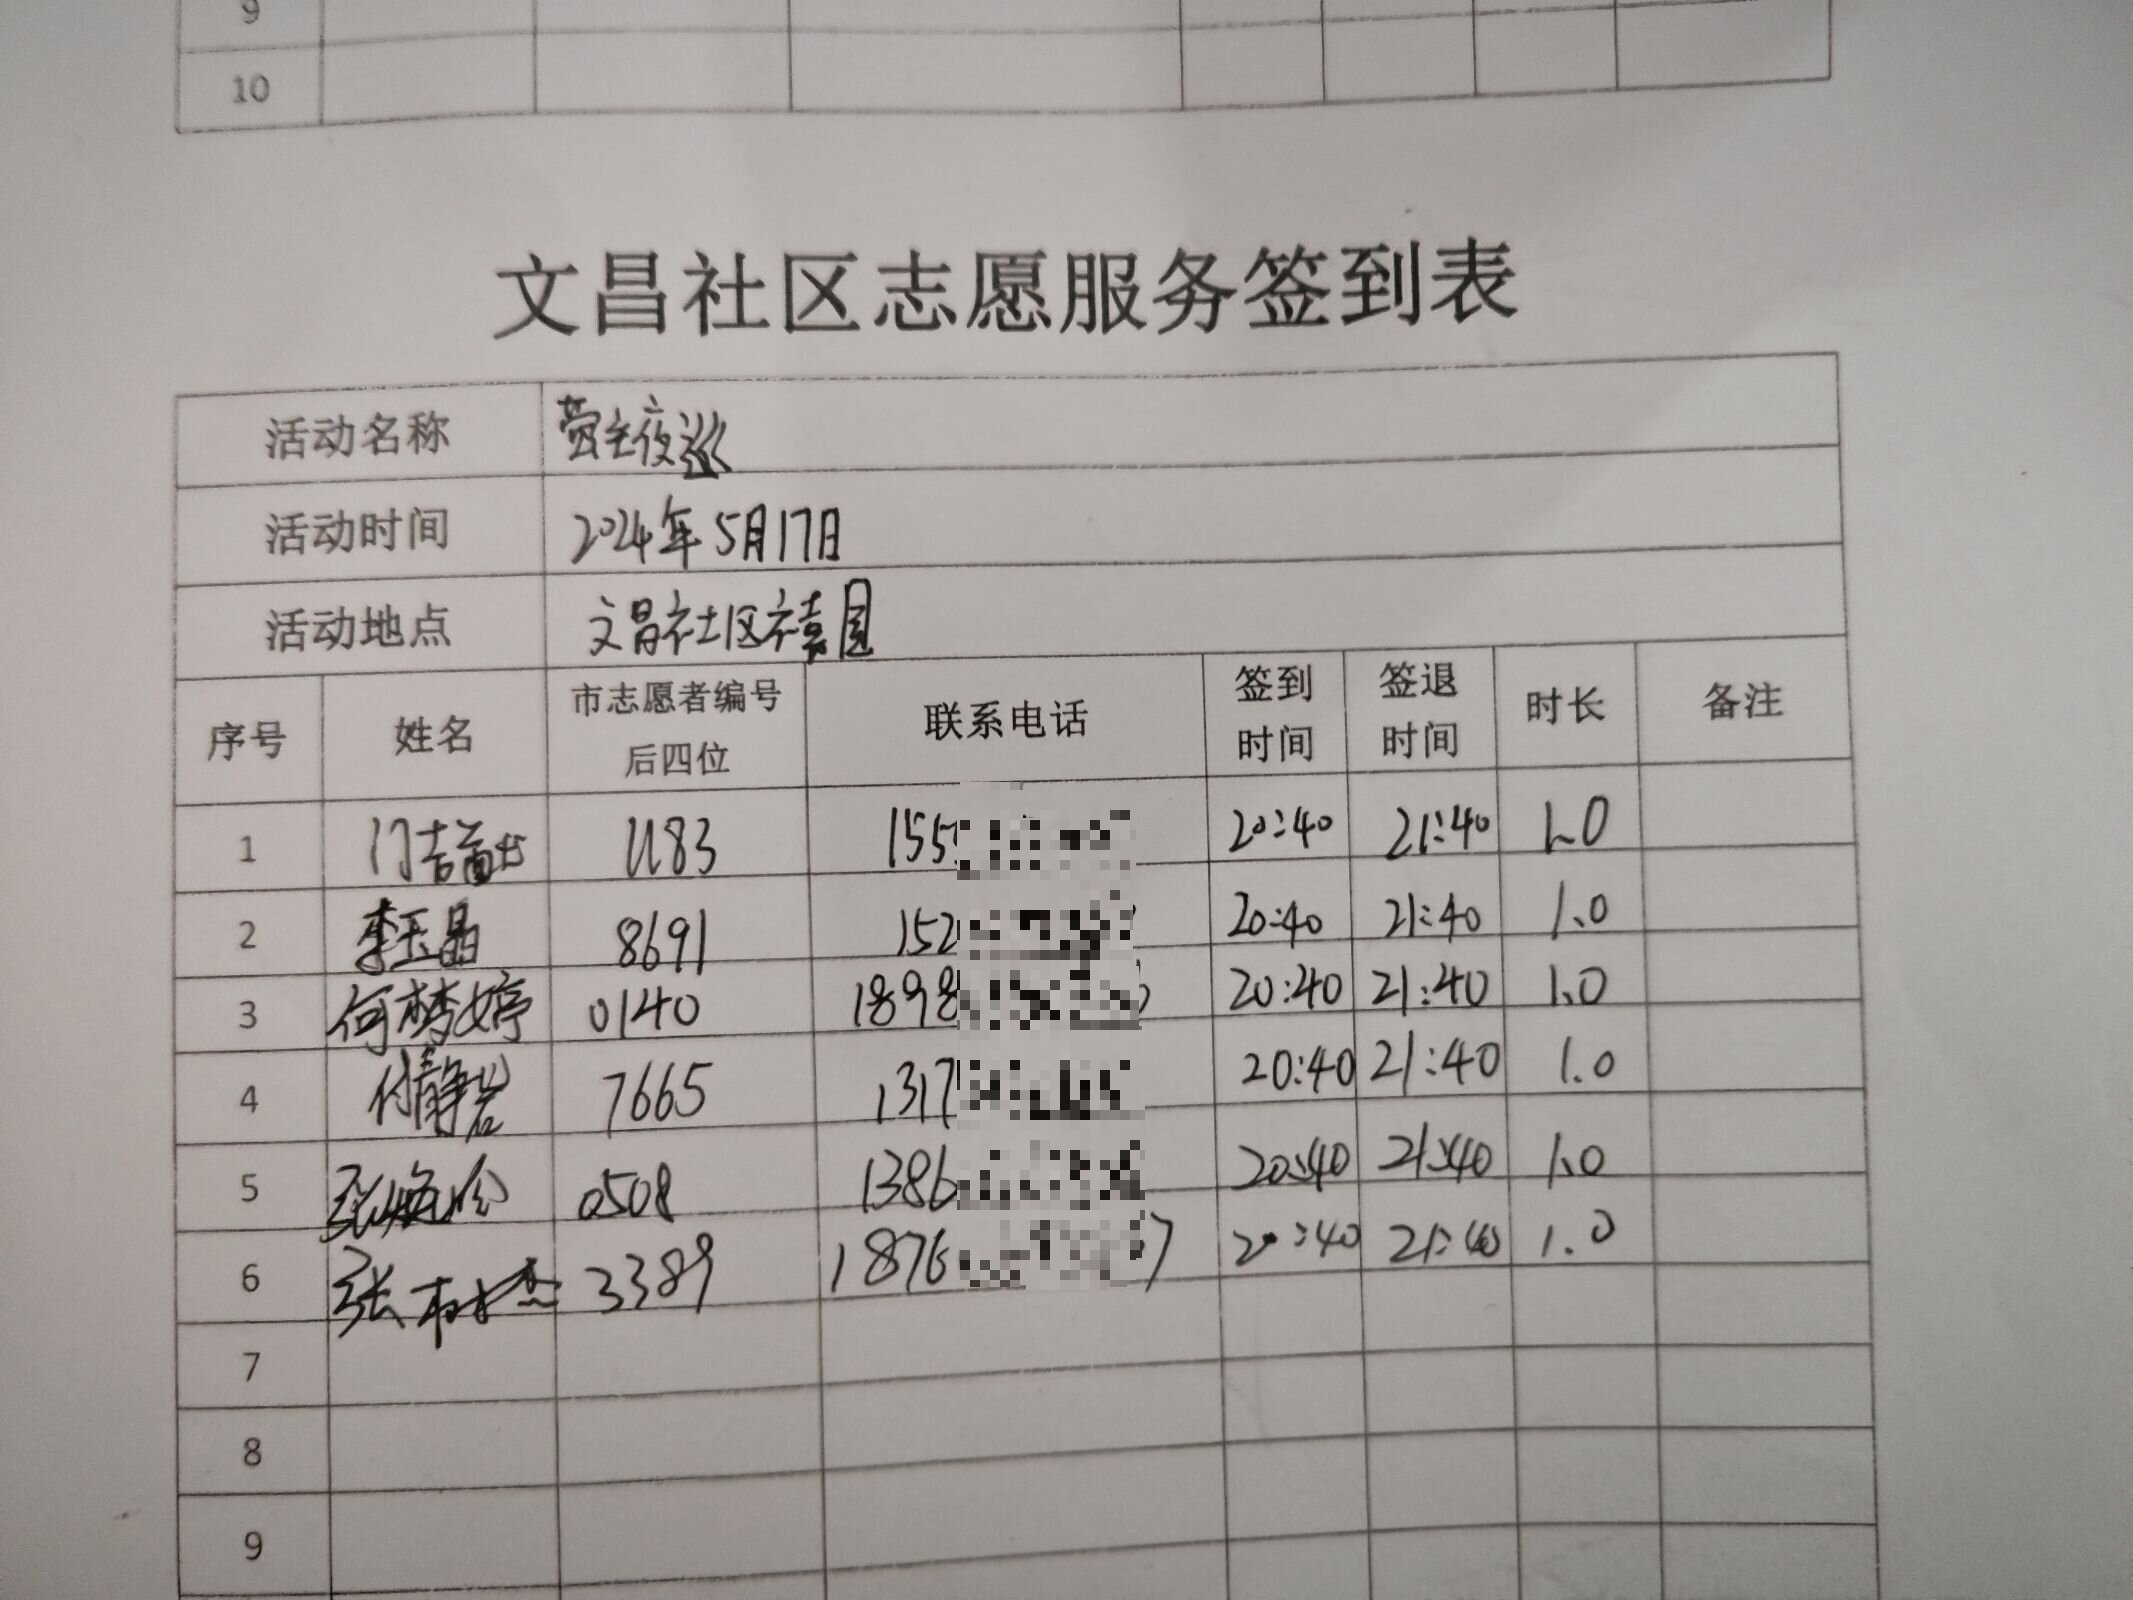 9
10
文昌社区志愿服务签到表
活动名称 夜巡
活动时间 2024年5月17日
活动地点 文昌社区禧园
序号 姓名 市志愿者编号后四位 联系电话 签到时间 签退时间 时长 备注
1 1183 155 20:40 21:40 1.0
2 李玉晶 8691 152 20:40 21:40 1.0
3 何梦婷 0140 1898 20:40 21:40 1.0
4 付静岩 7665 1317 20:40 21:40 1.0
5 张 0508 1386 20:40 21:40 1.0
6 张 3389 1876 7 20:40 21:40 1.0
7
8
9